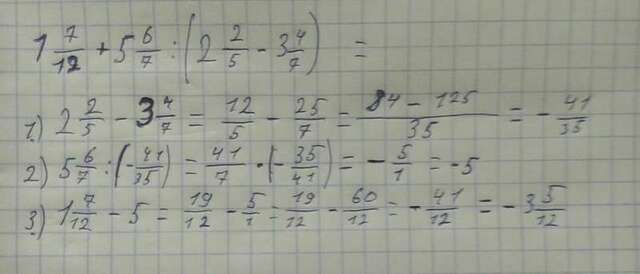 1 7/12 + 5 6/7 : (2 2/5 - 3 4/7) =
1) 2 2/5 - 3 4/7 = 12/5 - 25/7 = (84 - 125)/35 = - 41/35
2) 5 6/7 : (- 41/35) = 41/7 · (- 35/41) = - 5/1 = -5
3) 1 7/12 - 5 = 19/12 - 5/1 = 19/12 - 60/12 = - 41/12 = - 3 5/12